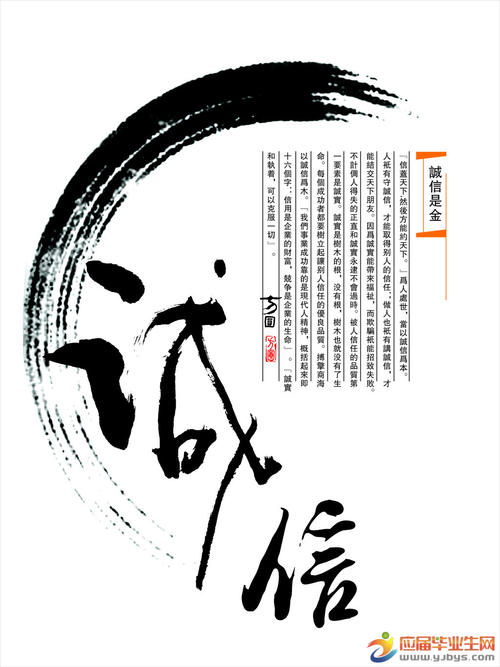 誠信是金
「信蓋天下然後方能約天下。」爲人處世，當以誠信爲本。
人衹有守誠信，才能取得别人的信任；做人也衹有講誠信，才
能結交天下朋友。因爲誠實能帶來福祉，而欺騙衹能招致失敗。
不計個人得失的正直和誠實永遠不會過時。被人信任的品質第
一要素是誠實。誠實是樹木的根，没有根，樹木也就没有了生
命。每個成功者都要樹立起讓别人信任的優良品質。搏擊商海
以誠信爲木。「我們事業成功靠的是現代人精神，概括起來即
十六個字：信用是企業的財富，競争是企業的生命」。「誠實
和執着，可以克服一切」。
方圓
誠信
应届毕业生网
www.yjbys.com